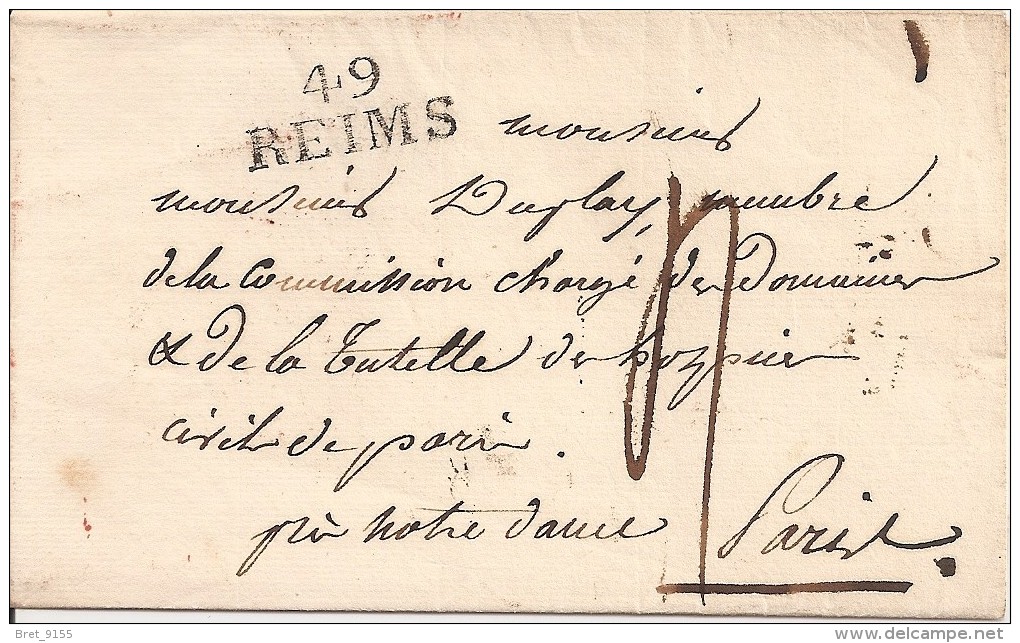 49
REIMS
monsieur
monsieur Duplay, membre
de la Commission chargé des Domaines
& de la tutelle des hospices
civils de paris.
près notre dame Paris
Bret_9155
www.delcampe.net